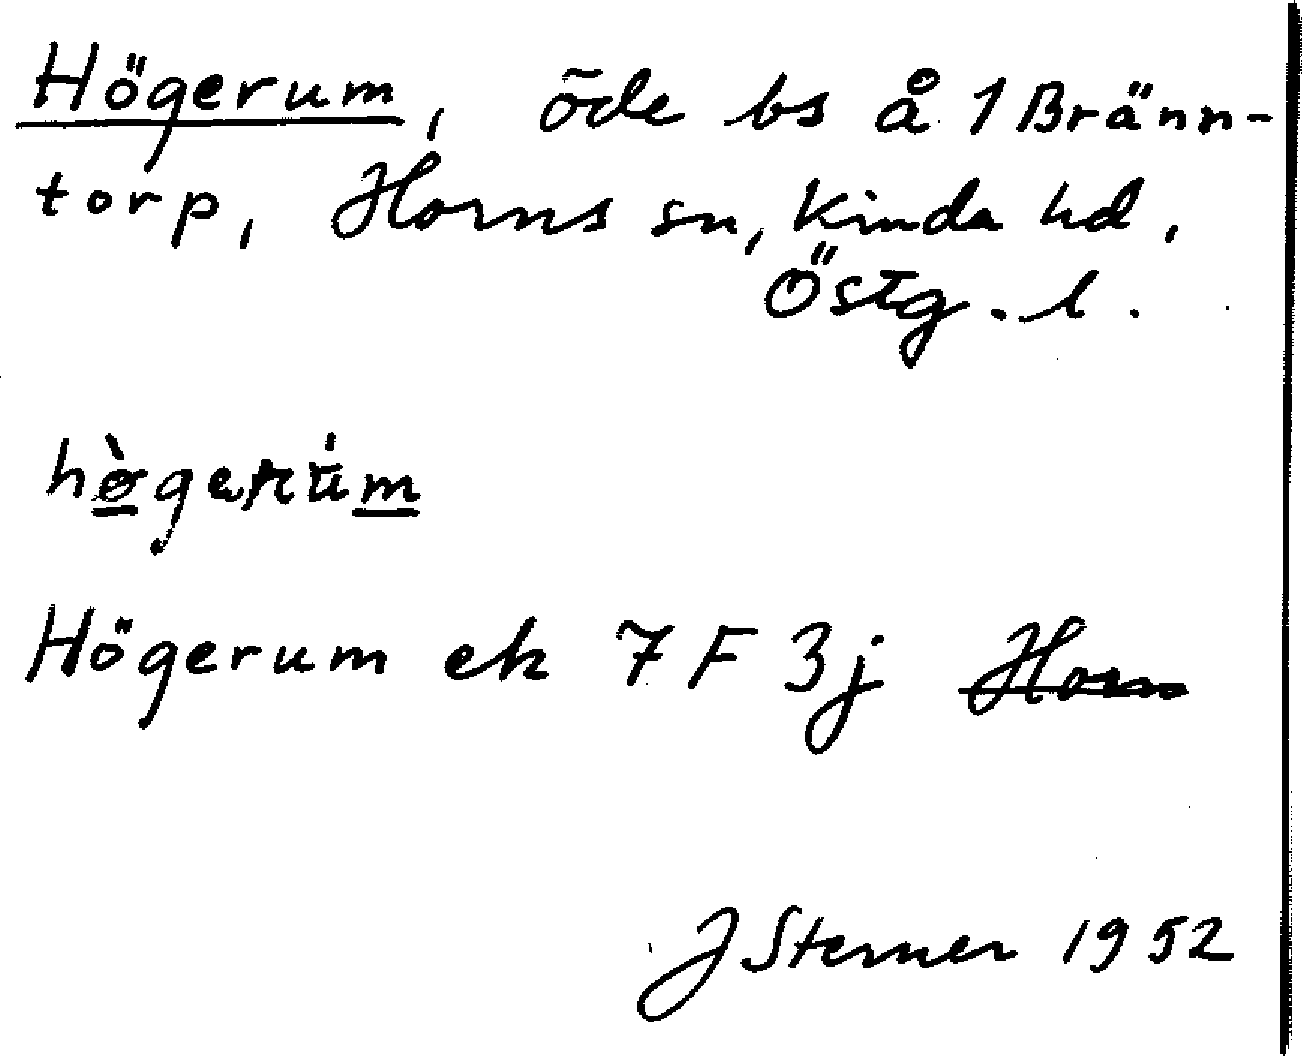 Högerum, öde bs å 1 Bränn-
torp, Horns sn, Kinda hd,
Östg. l.
Högerum ek 7 F 3j Horn
J Sterner 1952